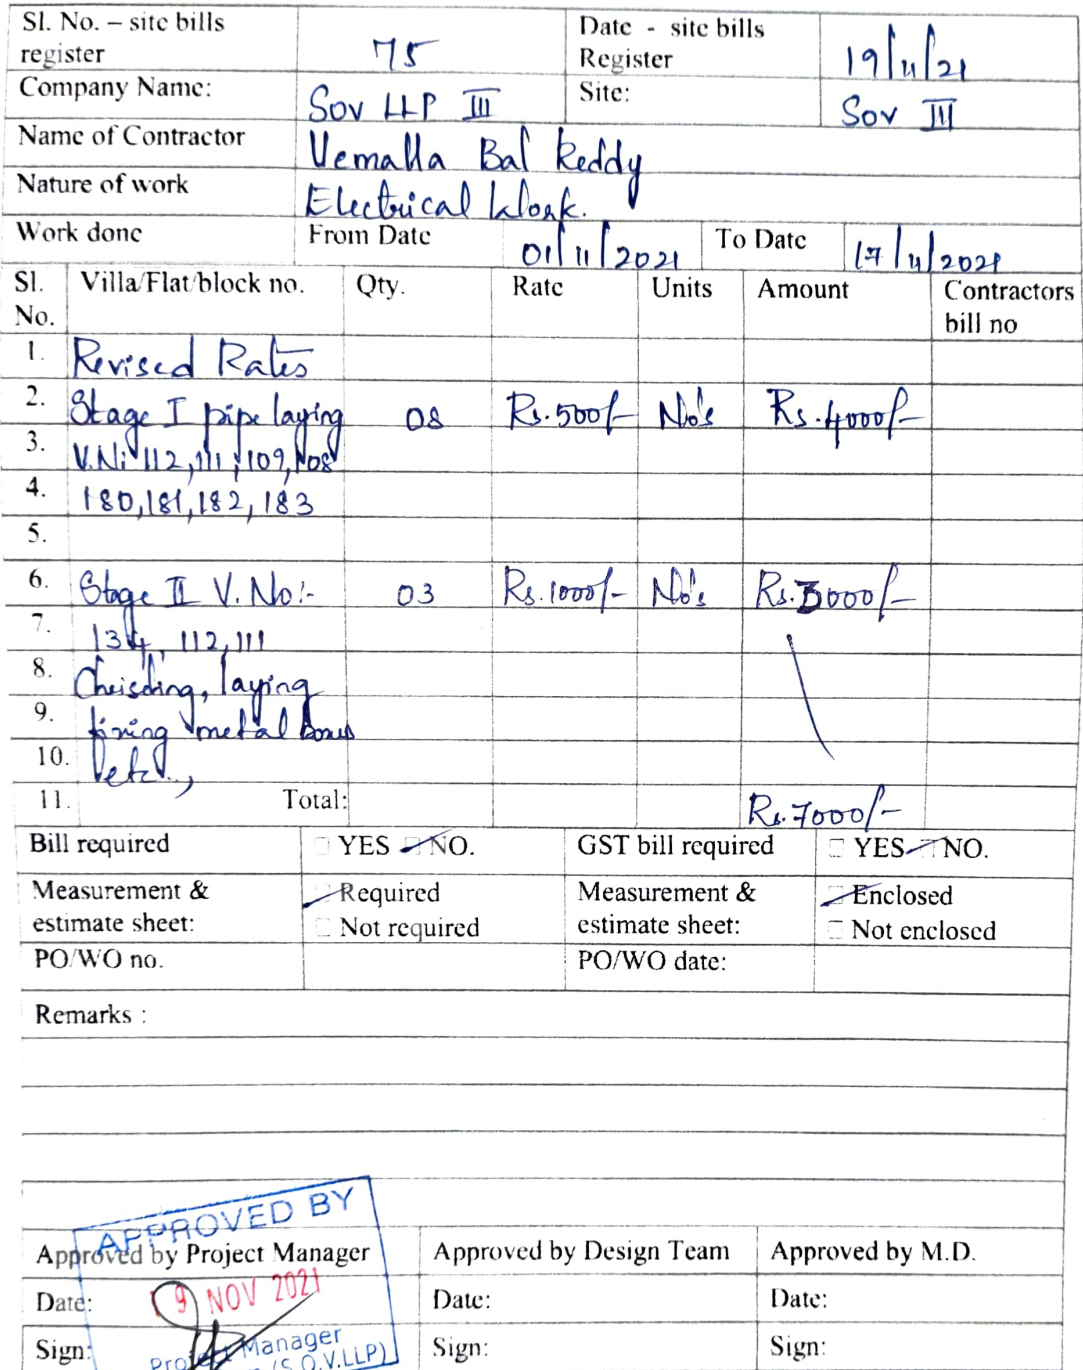 Sl. No. – site bills register 75 Date - site bills Register 19/11/21
Company Name: Sov LLP III Site: Sov III
Name of Contractor Vemalla Bal Reddy
Nature of work Electrical Work.
Work done From Date 01/11/2021 To Date 17/11/2021
Sl. No. Villa/Flat/block no. Qty. Rate Units Amount Contractors bill no
1. Revised Rates
2. Stage I pipe laying 08 Rs.500/- No's Rs.4000/-
3. V.No 112, 111, 109, 108
4. 180, 181, 182, 183
5.
6. Stage II V. No:- 03 Rs.1000/- No's Rs.3000/-
7. 134, 112, 111
8. Cheisding, laying
9. fixing metal boxes
10. etc..,
11. Total: Rs.7000/-
Bill required YES NO. GST bill required YES NO.
Measurement & estimate sheet: Required Measurement & estimate sheet: Enclosed
Not required Not enclosed
PO/WO no. PO/WO date:
Remarks :
APPROVED BY
Approved by Project Manager Approved by Design Team Approved by M.D.
Date: 19 NOV 2021 Date: Date:
Sign: Project Manager Sign: Sign:
(S.O.V.LLP)